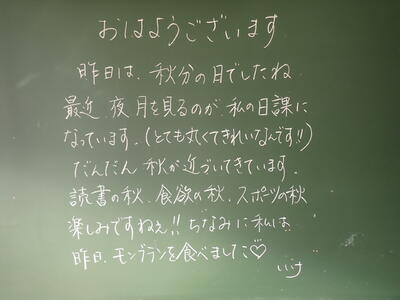 おはようございます
昨日は、秋分の日でしたね
最近、夜、月を見るのが、私の日課に
なっています。(とても丸くてきれいなんです!!)
だんだん 秋が近づいてきています。
読書の秋、食欲の秋、スポーツの秋
楽しみですねぇ!! ちなみに私は
昨日、モンブランを食べました♡